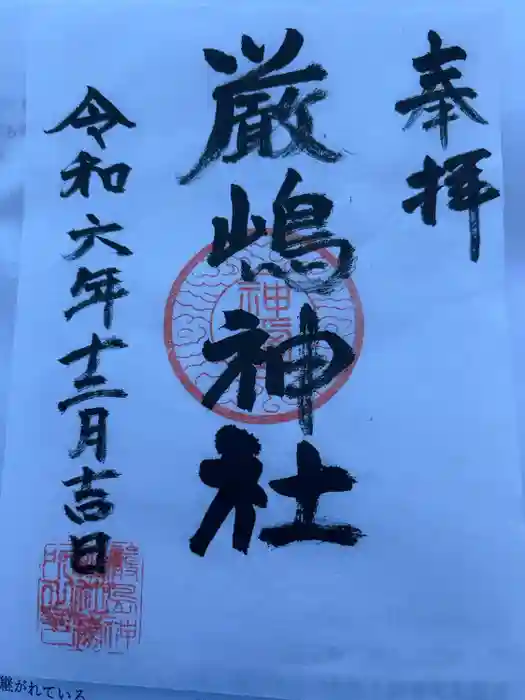 奉拝
厳嶋神社
令和六年十二月吉日
継がれている